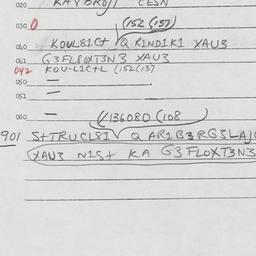 020 KAYBRO11 CESN
030 0 (152 (157)
040 KOUL81C+ Q RIND1K1 XAU3
041 G3FL8OXT3N3 XAU3
042 KOU-L1C+L (152(157
050 —
051 —
060 — (136080 (108
901 S+TRUCL81V Q AR1B3RG3LAJ
(XAU3 N1S+ KA G3FLOXT3N3